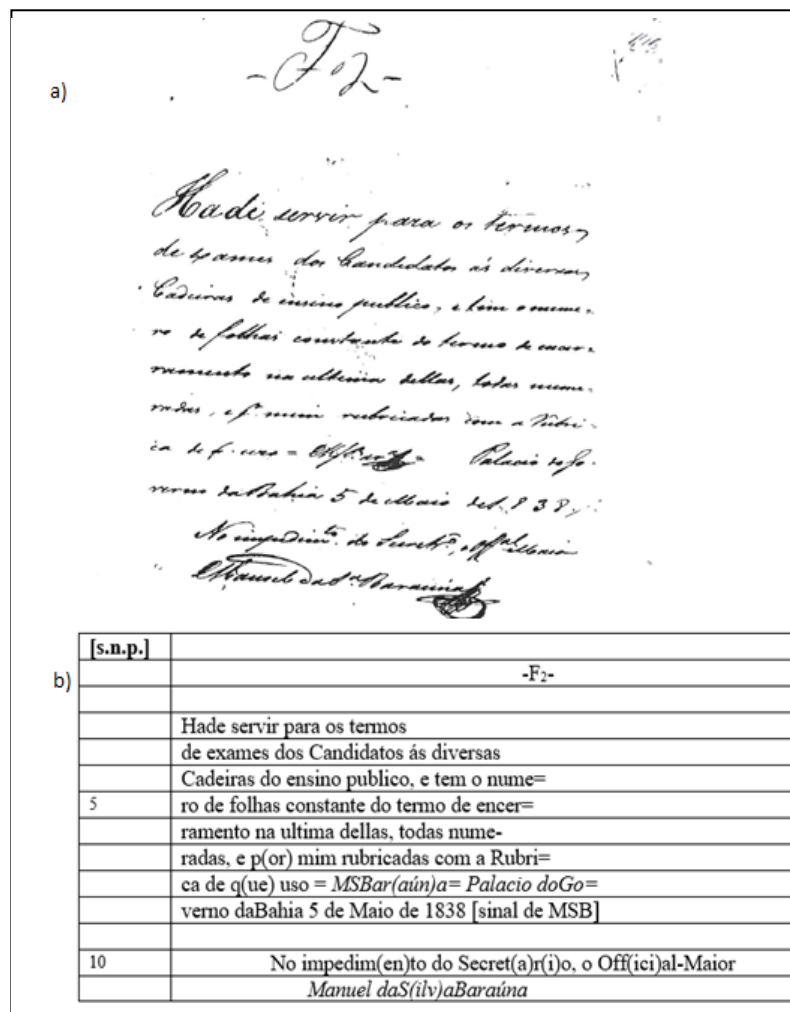 a)
-F2-
Hade servir para os termos
de exames dos Candidatos ás diversas
Cadeiras de ensino publico, e tem o nume=
ro de folhas constante do termo de encer=
ramento na ultima dellas, todas nume=
radas, e p. mim rubricadas com a Rubri=
ca de q. uso = = Palacio do Go=
verno daBahia 5 de Maio de 1838
No impedim.to do Secret.ro, o Off.al Maior
Manuel daS.a Baraúna
b)
[s.n.p.]
-F2-
Hade servir para os termos
de exames dos Candidatos ás diversas
Cadeiras do ensino publico, e tem o nume=
5 ro de folhas constante do termo de encer=
ramento na ultima dellas, todas nume-
radas, e p(or) mim rubricadas com a Rubri=
ca de q(ue) uso = MSBar(aún)a= Palacio doGo=
verno daBahia 5 de Maio de 1838 [sinal de MSB]
10 No impedim(en)to do Secret(a)r(i)o, o Off(ici)al-Maior
Manuel daS(ilv)aBaraúna